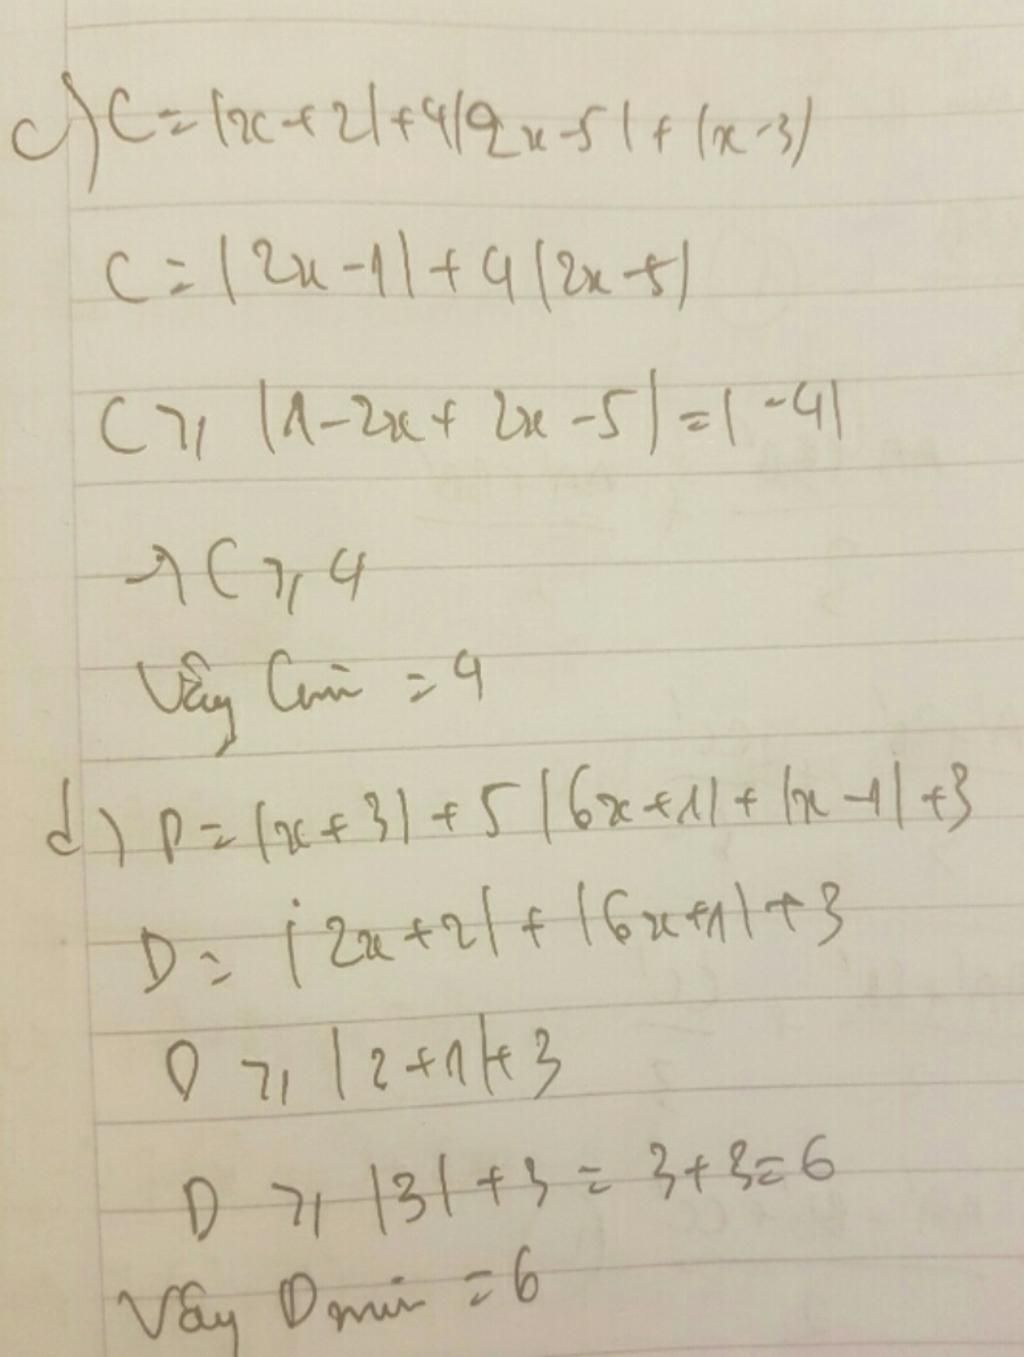 c) C = |x+2| + 4|2x-5| + |x-3|
C = |2x-1| + 4|2x-5|
C ⩾ |1-2x + 2x-5| = |-4|
→ C ⩾ 4
Vậy Cmin = 4
d) D = |x+3| + 5|6x+1| + |x-1| + 3
D = |2x+2| + |6x+1| + 3
D ⩾ |2+1| + 3
D ⩾ |3| + 3 = 3+3=6
Vậy Dmin = 6